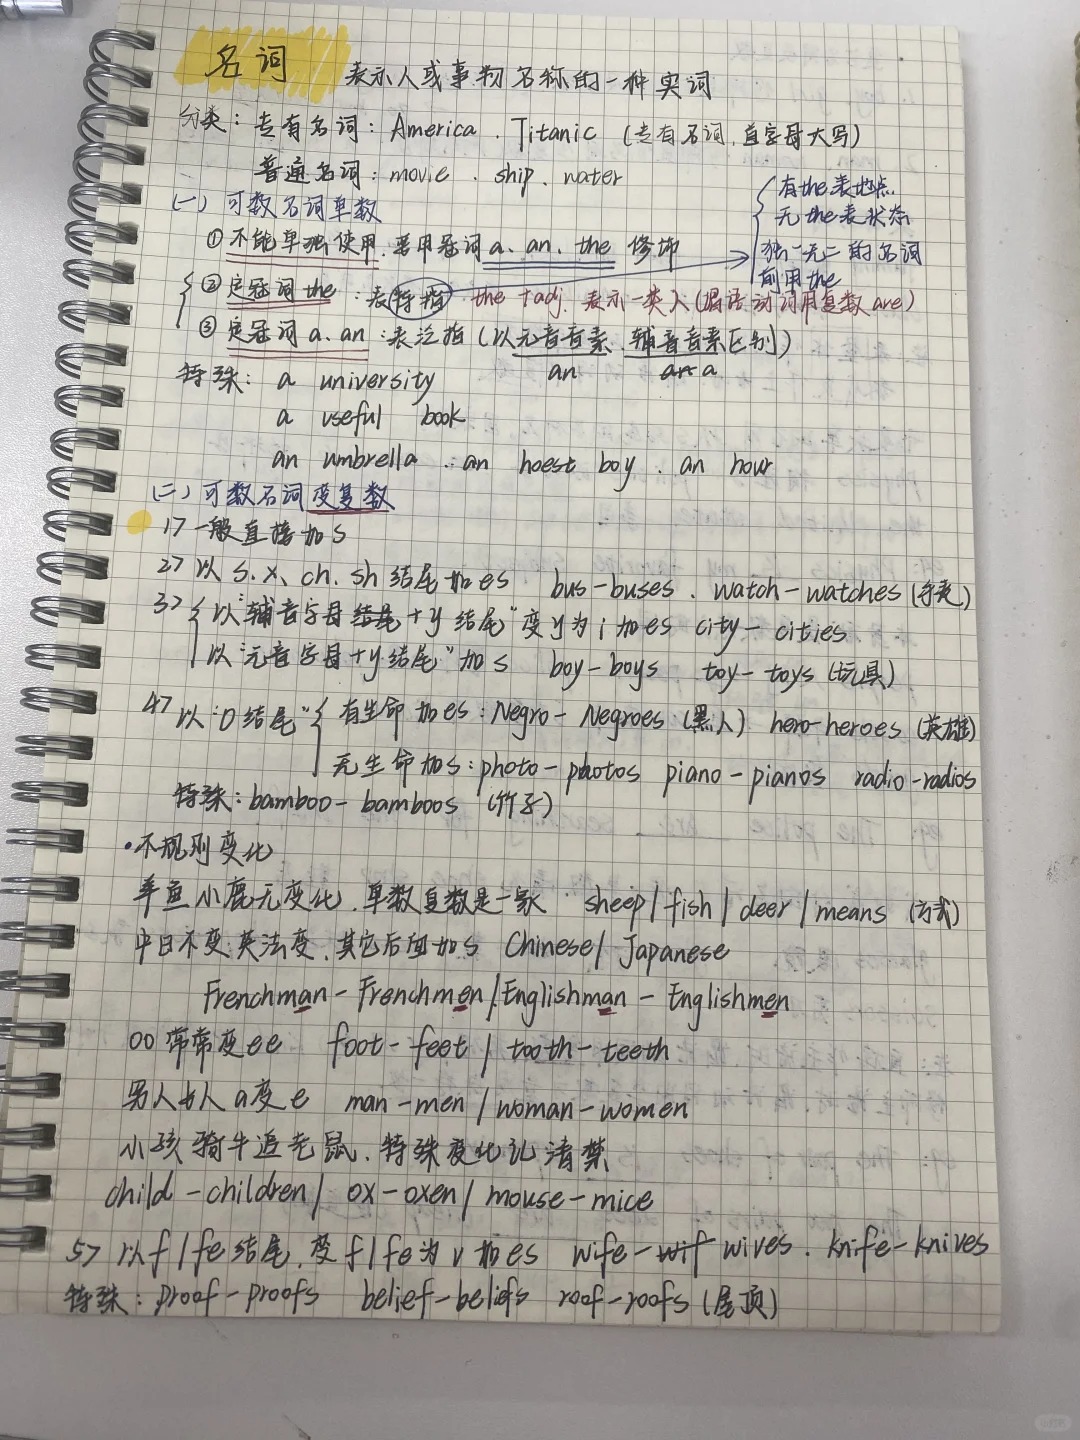 名词 表示人或事物名称的一种实词
分类：专有名词：America、Titanic（专有名词，首字母大写）
普通名词：movie、ship、water
(一) 可数名词单数
有the表地点
无the表状态
①不能单独使用，要用冠词a、an、the 修饰
独一无二的名词
前用the
②定冠词the：表特指 the + adj. 表示一类人（谓语动词用复数are）
③定冠词a、an：表泛指（以元音音素、辅音音素区别）
an an a
特殊：a university
a useful book
an umbrella . an hoest boy . an hour
(二) 可数名词变复数
1> 一般直接加s
2> 以s、x、ch、sh结尾加es bus-buses . watch-watches (手表)
3> 以“辅音字母结尾+y结尾”变y为i加es city-cities
以“元音字母+y结尾”加s boy-boys toy-toys (玩具)
4> 以“O结尾” 有生命加es：Negro-Negroes (黑人) hero-heroes (英雄)
无生命加s：photo-photos piano-pianos radio-radios
特殊：bamboo-bamboos (竹子)
·不规则变化
羊鱼小鹿无变化，单数复数是一家 sheep/fish/deer/means (方式)
中日不变英法变，其它后面加s Chinese/Japanese
Frenchman-Frenchmen/Englishman-Englishmen
oo常常变ee foot-feet/tooth-teeth
男人女人a变e man-men/woman-women
小孩骑牛追老鼠，特殊变化记清楚
child-children/ox-oxen/mouse-mice
5> 以f/fe结尾，变f/fe为v加es wife-wif wives . knife-knives
特殊：proof-proofs belief-beliefs roof-roofs (屋顶)